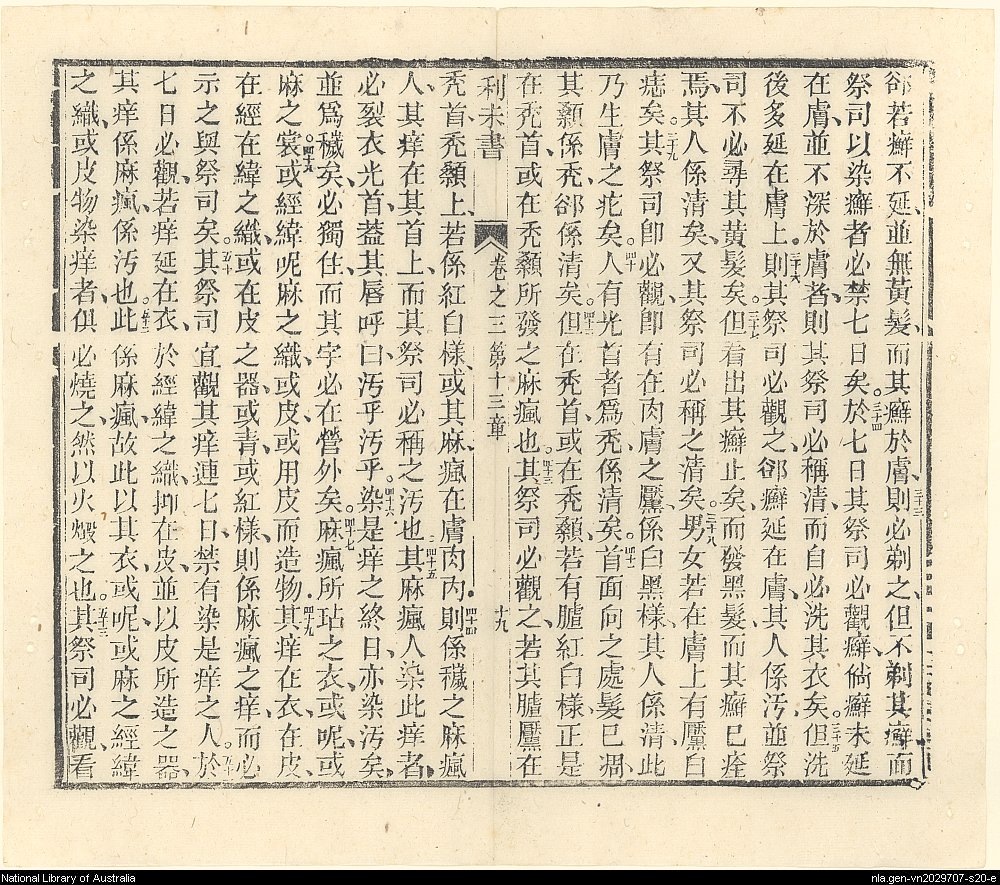 郤若癬不延、並無黃髮、而其癬於膚、三十三則必剃之、但不剃其癬、而
祭司以染癬者必禁七日矣。三十四於七日其祭司必觀癬、倘癬未延
在膚、並不深於膚者、則其祭司必稱清、而自必洗其衣矣。三十五但洗
後多延在膚上。三十六則其祭司必觀之、郤癬延在膚、其人係汚、並祭
司不必尋其黃髮矣。三十七但看出其癬止矣、而發黑髮、而其癬已痊
焉、其人係清矣、又其祭司必稱之清矣。三十八男女若在膚上有黶白
痣矣。三十九其祭司卽必觀、卽有在肉膚之黶、係白黑樣、其人係清、此
乃生膚之疕矣。四十人有光首者爲禿係清矣。四十一首面向之處髮已凋、
其顙係禿、郤係清矣。四十二但在禿首、或在禿顙、若有臚紅白樣、正是
在禿首或在禿顙所發之麻瘋也。四十三其祭司必觀之、若其臚黶在
利未書 卷之三 第十三章 十九
禿首禿顙上、若係紅白樣、或其麻瘋在膚肉內、四十四則係穢之麻瘋
人、其痒在其首上、而其祭司必稱之汚也。四十五其麻瘋人染此痒者、
必裂衣光首葢其唇呼曰、汚乎汚乎。四十六染是痒之終日、亦染汚矣、
並爲穢矣、必獨住、而其字必在營外矣。四十七麻瘋所玷之衣、或呢或
麻之裳。四十八或經緯呢麻之織、或皮、或用皮而造物、四十九其痒在衣、在皮、
在經在緯之織、或在皮之器、或青、或紅樣、則係麻瘋之痒、而必
示之與祭司矣。五十其祭司宜觀其痒、連七日、禁有染是痒之人。五十一於
七日必觀、若痒延在衣、於經緯之織、抑在皮、並以皮所造之器、
其痒係麻瘋、係汚也。五十二此係麻瘋、故此以其衣、或呢、或麻之經緯
之織、或皮物染痒者、俱必燒之、然以火燬之也。五十三其祭司必觀、看
National Library of Australia
nla.gen-vn2029707-s20-e